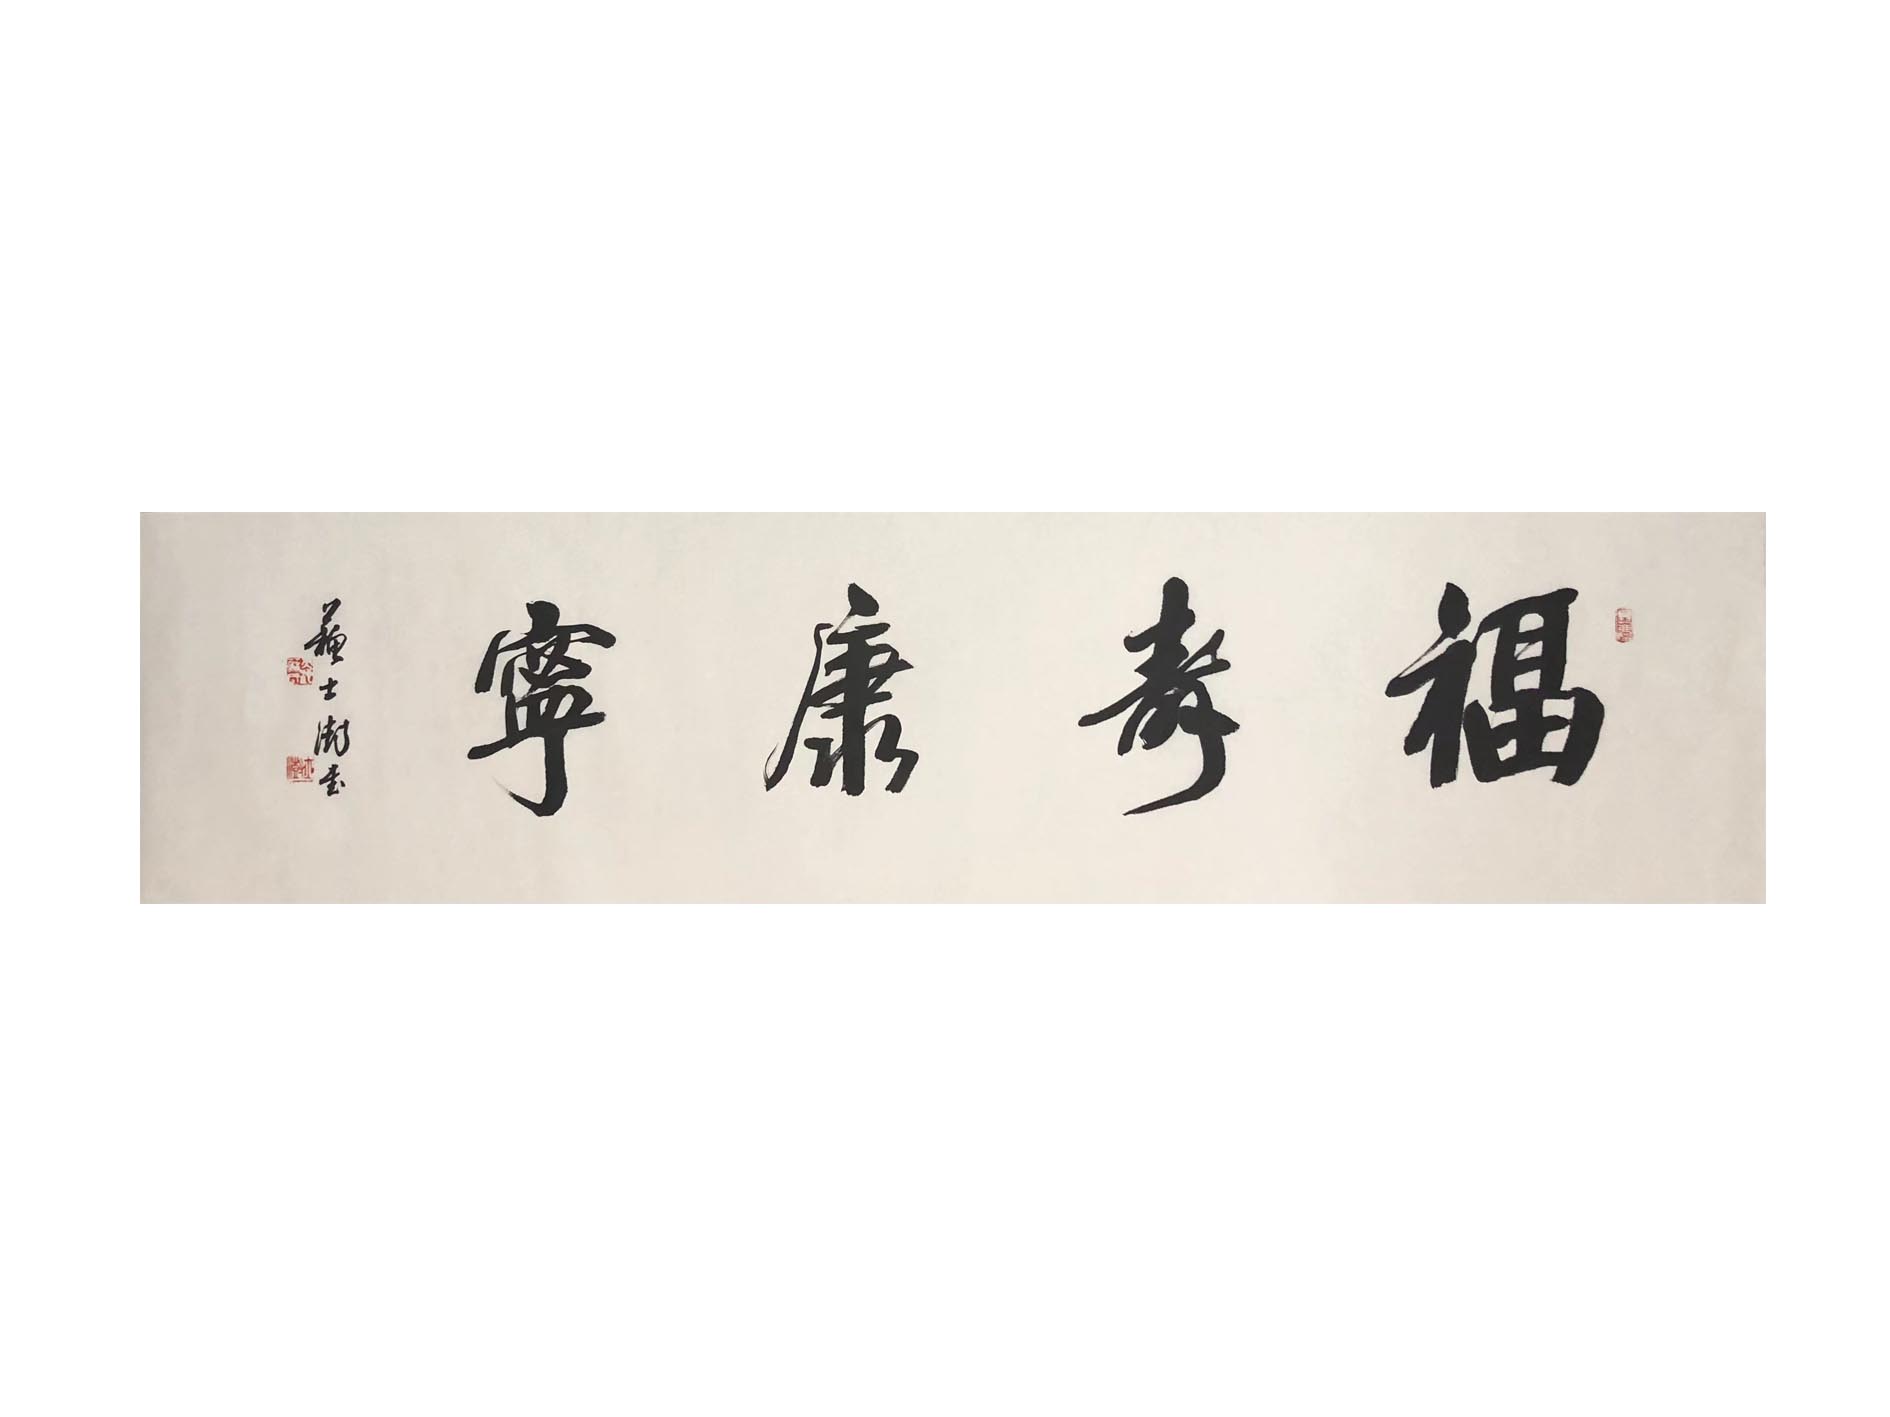 福壽康寧
蘇士澍書